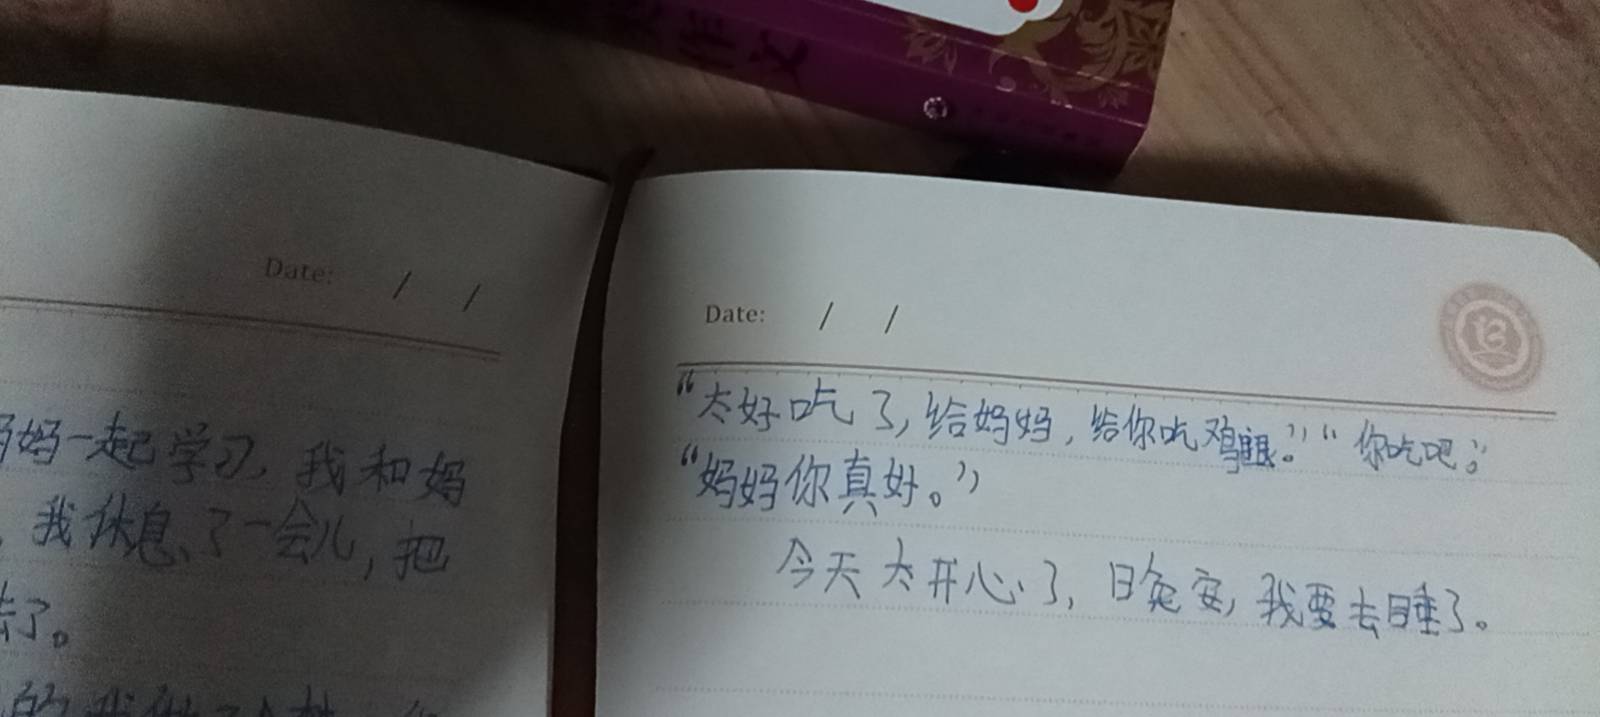 作文
Date: / /
妈妈一起学习，我和妈
，我休息了一会儿，把
去了。
Date: / /
“太好吃了，给妈妈，给你吃鸡腿。”“你吃吧。”
“妈妈你真好。”
今天太开心了，晚安，我要去睡了。